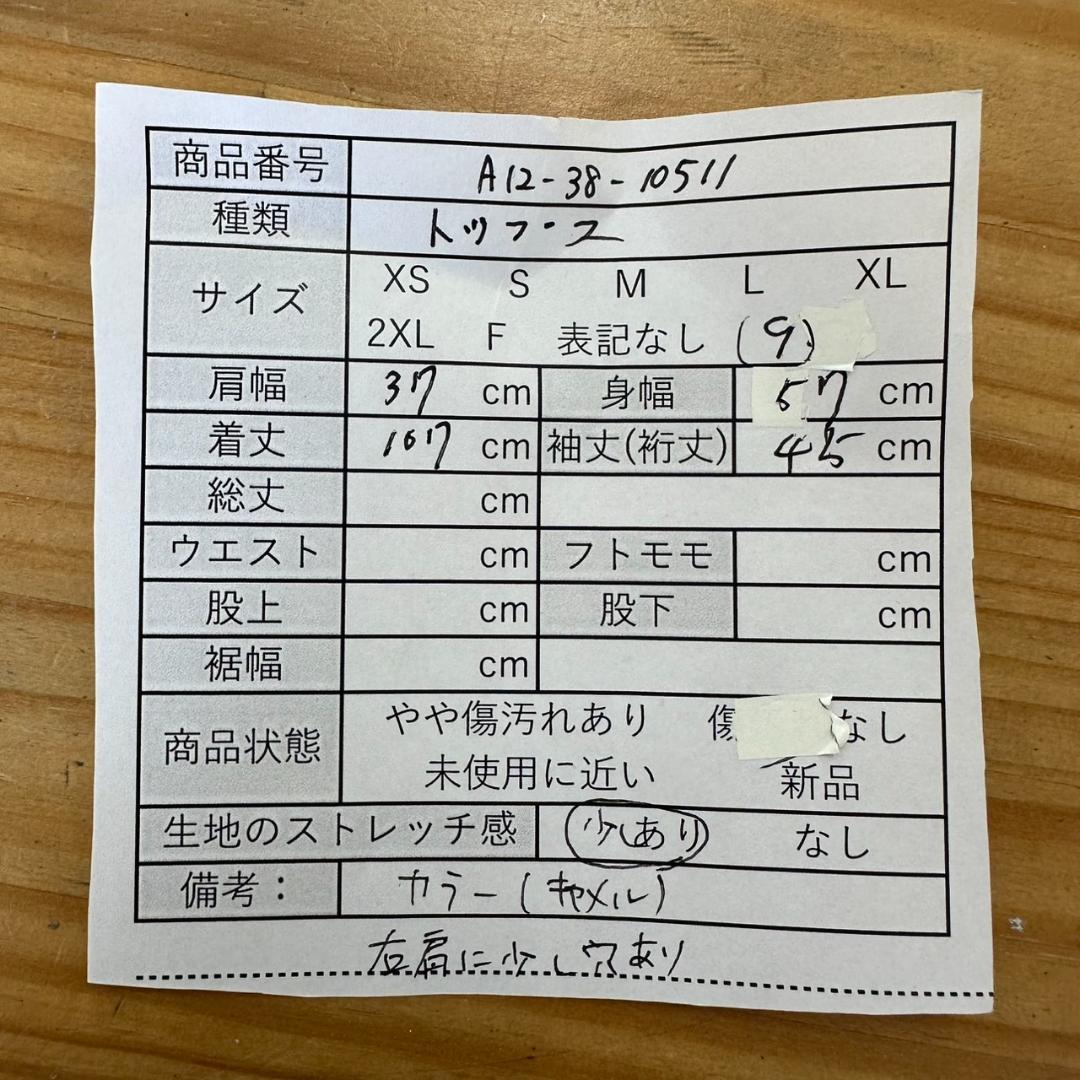 商品番号 A12-38-10511
種類 トップス
サイズ XS S M L XL
2XL F 表記なし (9)
肩幅 37 cm 身幅 57 cm
着丈 107 cm 袖丈(裄丈) 45 cm
総丈 cm
ウエスト cm フトモモ cm
股上 cm 股下 cm
裾幅 cm
商品状態 やや傷汚れあり 傷 なし
未使用に近い 新品
生地のストレッチ感 少しあり なし
備考： カラー(キャメル)
右肩に少し穴あり